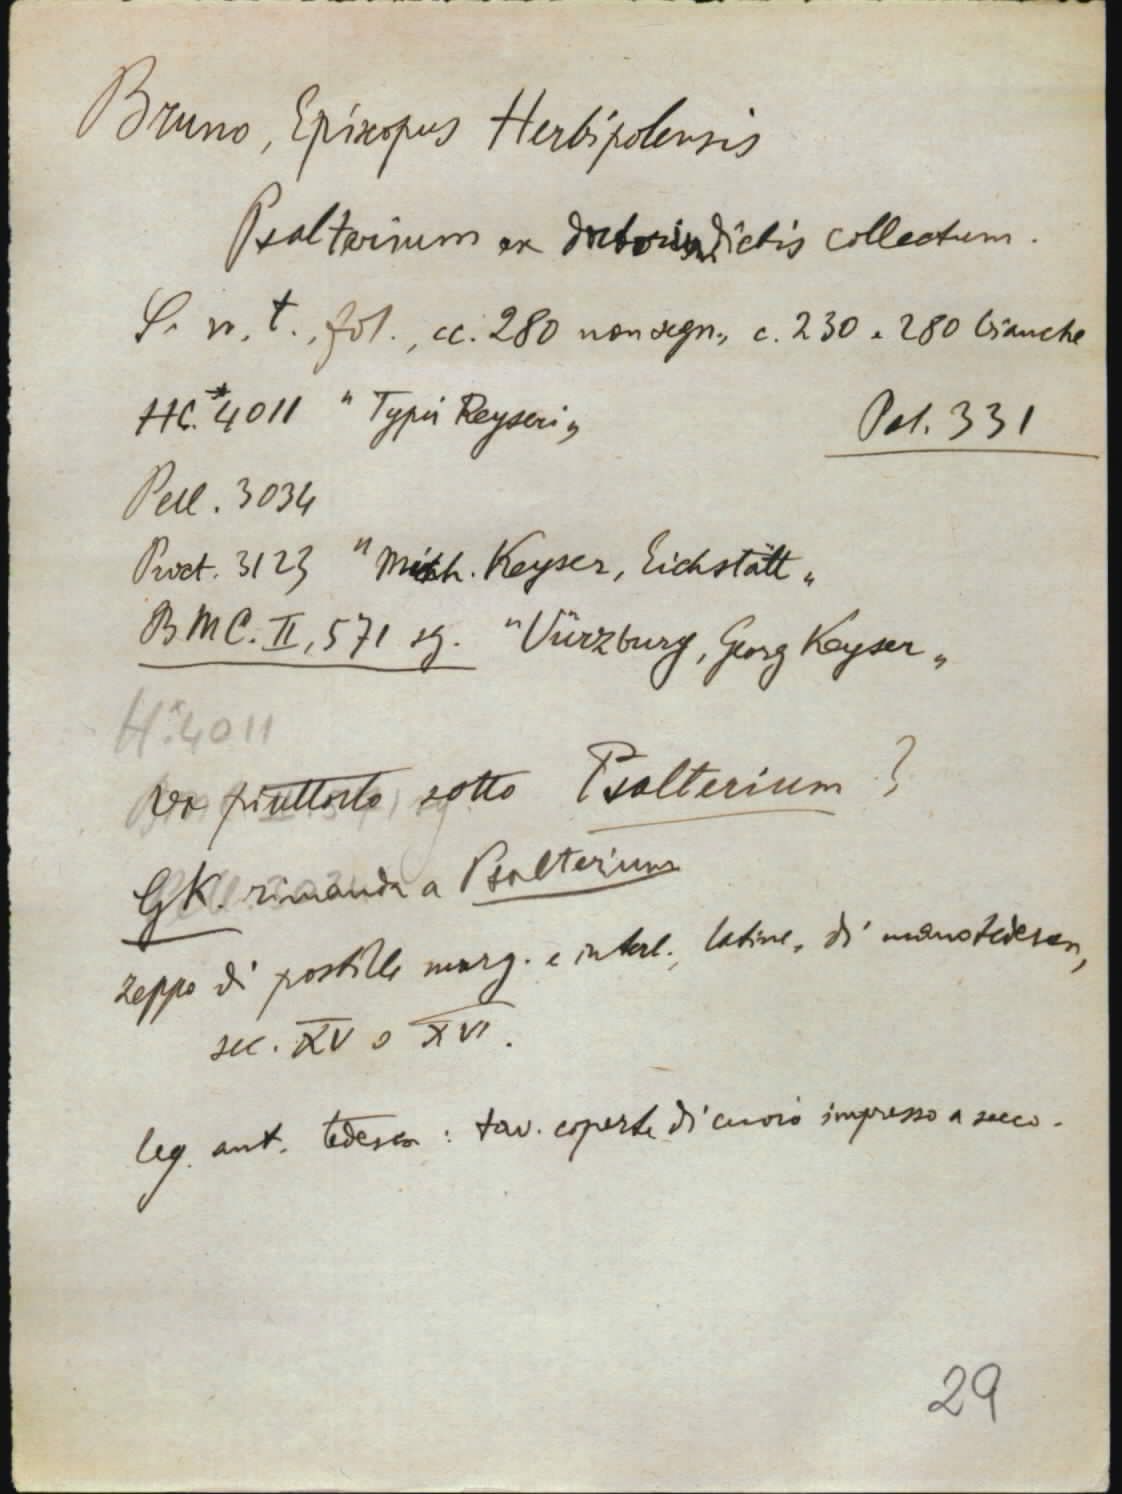 Bruno, Episcopus Herbipolensis
Psalterium ex doctorum dictis collectum.
S. n. t., fol., cc. 280 non segn., c. 230 e 280 bianche
HC.*4011 "Typis Reyseri„
Pal. 331
Pell. 3034
Proct. 3123 "Mich. Reyser, Eichstätt„
BMC. II, 571 sg. "Würzburg, Georg Reyser„
H*.4011
va piuttosto sotto Psalterium?
GK. rimanda a Psalterium
zeppo di postille marg. e interl., latine, di mano tedesca,
sec. XV o XVI.
leg. ant. tedesca: tav. coperte di cuoio impresso a secco.
29